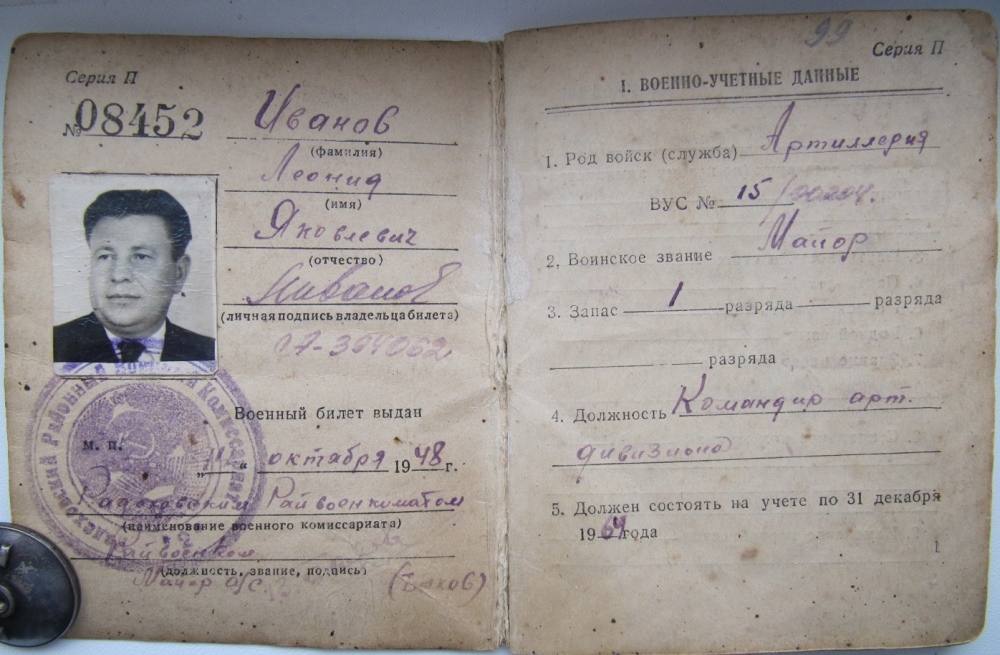 Серия П
№ 08452
Иванов
(фамилия)
Леонид
(имя)
Яковлевич
(отчество)
(личная подпись владельца билета)
Военный билет выдан
м. п.
„11“ октября 1948 г.
Райвоенкоматом
(наименование военного комиссариата)
Райвоенком
(должность, звание, подпись)
Майор а/с.
99
Серия П
I. ВОЕННО-УЧЕТНЫЕ ДАННЫЕ
1. Род войск (служба) Артиллерия
ВУС № 15
2. Воинское звание Майор
3. Запас 1 разряда разряда
разряда
4. Должность Командир арт.
дивизиона
5. Должен состоять на учете по 31 декабря
1964 года
1